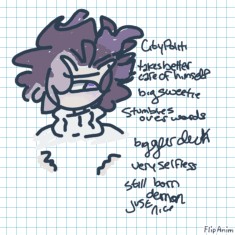 takes better
care of himself
big sweetie
stumbles
over words
bigger
very selfless
still born
demon
just nice
FlipAnim